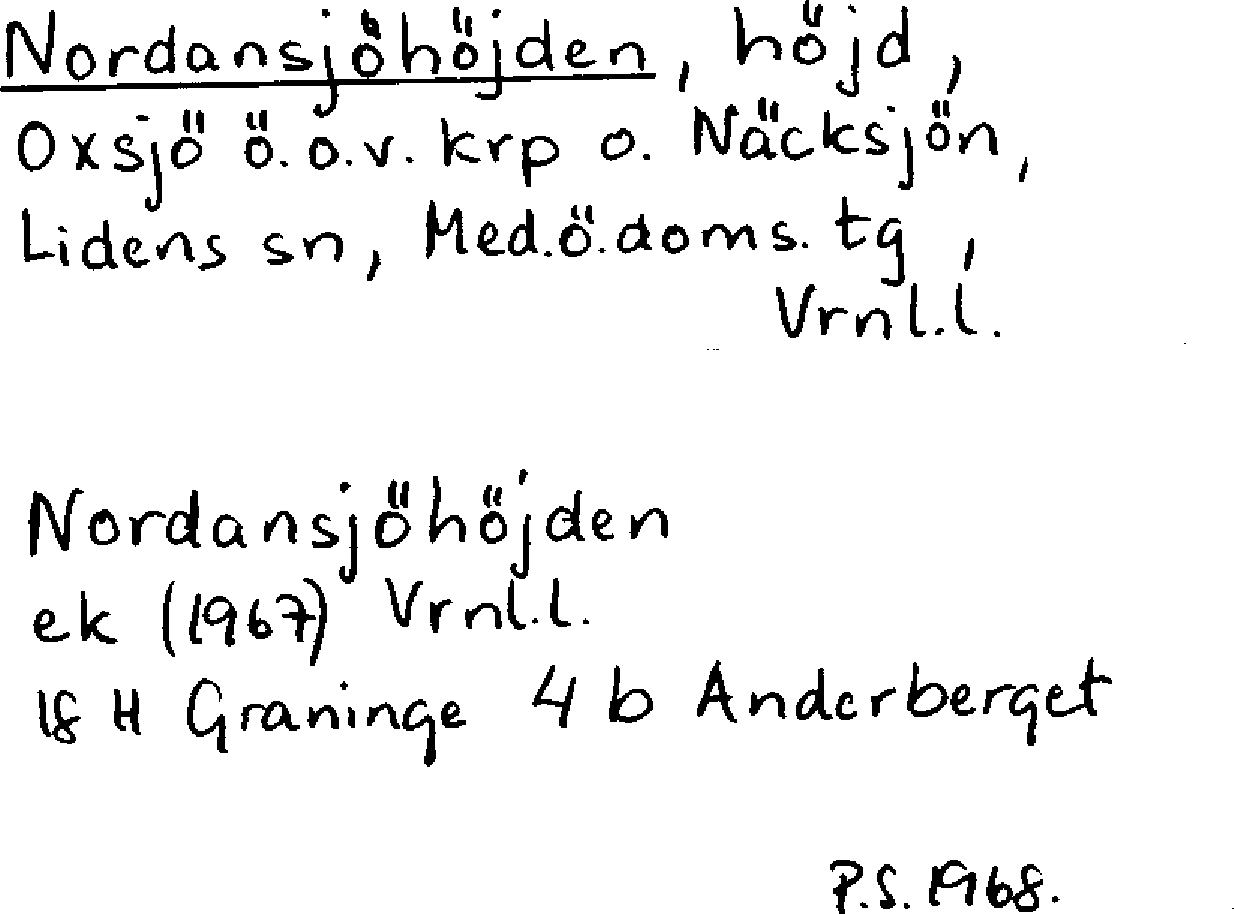 Nordansjöhöjden, höjd,
Oxsjö ö.o.v. krp o. Näcksjön,
Lidens sn, Med.ö.doms. tg,
Vrnl.l.
Nordansjöhöjden
ek (1967) Vrnl.l.
18 H Graninge 4 b Anderberget
P.S. 1968.